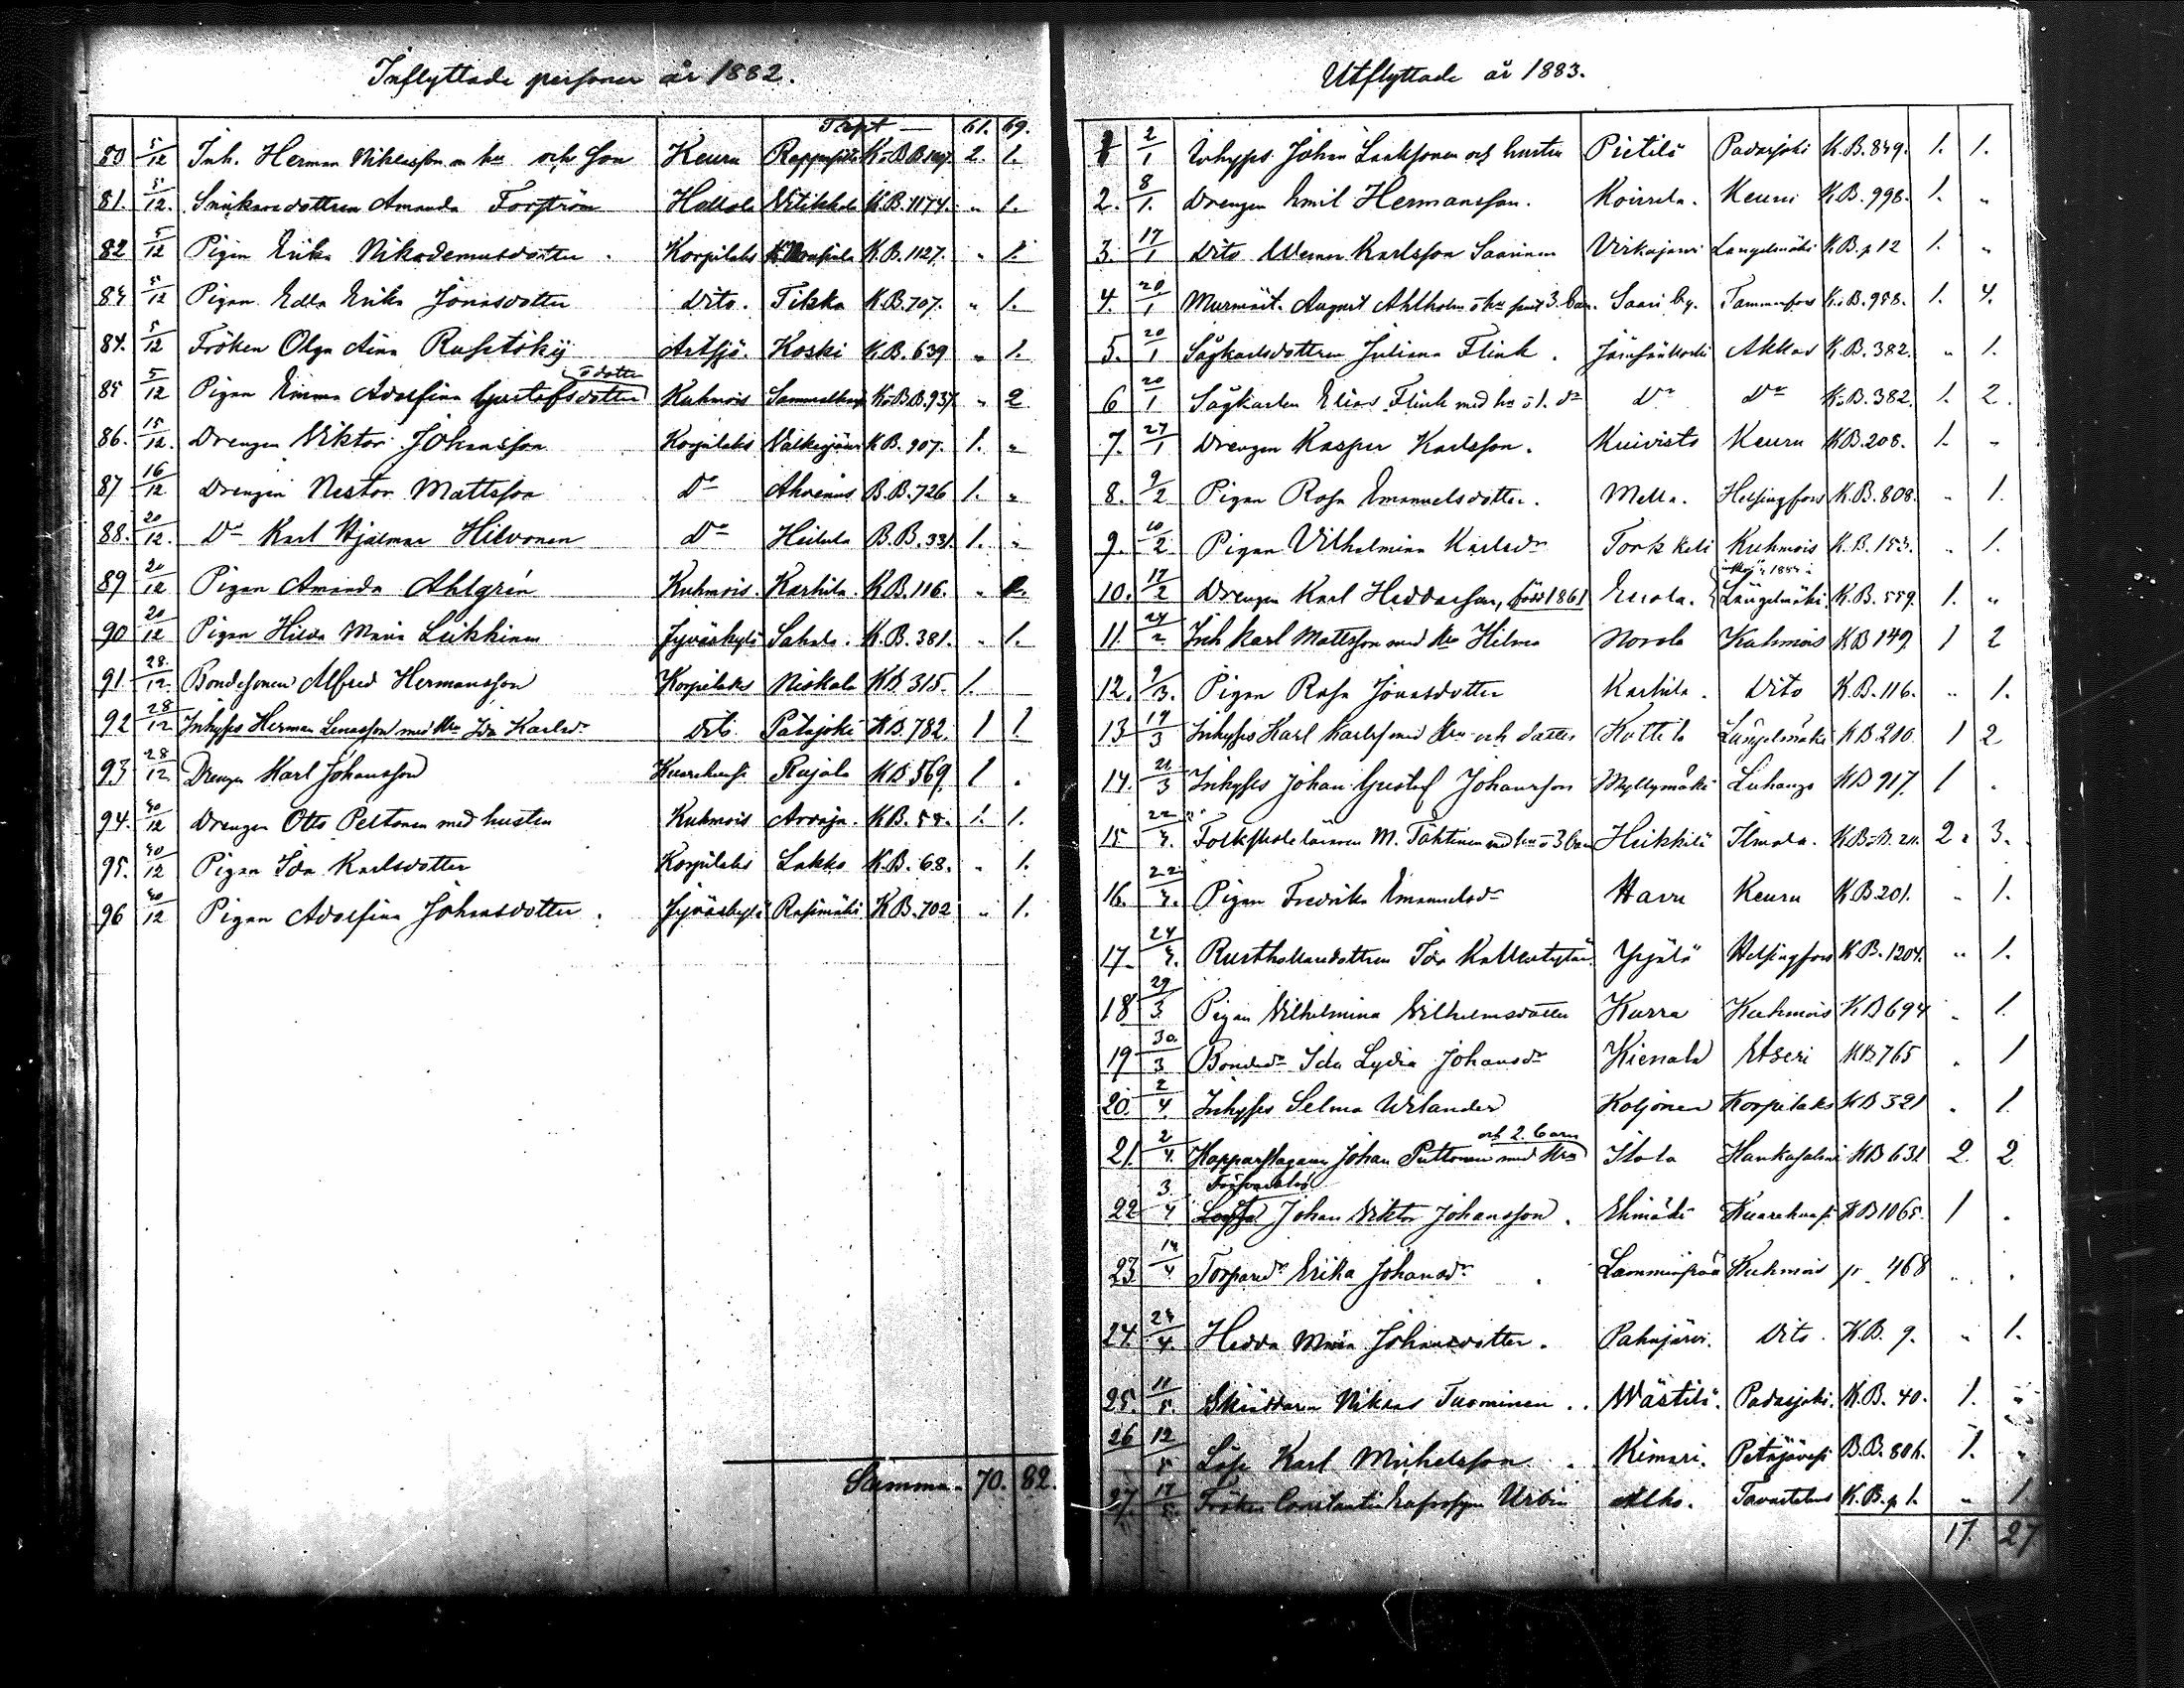 Inflyttade personer år 1882.
Trspt — 61. 69.
80 5/12 Inh. Herman Niklasson m hu och son Keuru K.o.B.B. 2. 1.
81. 5/12. Snickaredottren Amanda Forström Hollola K.B. 1174. " 1.
82 5/12 Pigan Erika Nikodemusdotter. Korpilaks K.B. 1127. " 1.
83 5/12 Pigan Edla Erika Jonasdotter Dito. Tikka K.B. 707. " 1.
84. 5/12 Fröken Olga Aina Artsjö. Koski K.B. 639 " 1.
o dotter
85 5/12 Pigan Emma Adolfina Gustafsdotter Kuhmois K.o.B.B. 937 " 2
86. 15/12. Drengen Viktor Johansson Korpilaks K.B. 907. 1. "
87 16/12 Drengen Nestor Mattsson Do Ahvenus B.B. 726 1. "
88. 20/12. Do Karl Hjalmar Hilvonen Do Heilula B.B. 331. 1. "
89 20/12 Pigan Amanda Ahlgrén Kuhmois. Karhila. K.B. 116. " 1.
90 20/12 Pigan Hilda Maria Leikkinen Jyväskylä Sahala. K.B. 381. " 1.
91 28./12. Bondesonen Alfred Hermansson Korpilaks Niskala KB. 315. 1.
92 28/12 Inhyses Herman Lenasson med Hu Ida Karlsdr Dito Pätäjoki KB. 782. 1 1
93 28/12 Drengen Karl Johansson Rujala KB 569. 1 .
94. 30/12 Drengen Otto Peltonen med hustru Kuhmois Arvaja. K.B. 58. 1. 1.
95. 30/12 Pigan Ida Karlsdotter Korpilaks Lakko K.B. 68. " 1.
96 30/12 Pigan Adolfina Johansdotter. Jyväskylä Rasimäki K.B. 702 " 1.
Summa. 70. 82.
Utflyttade år 1883.
1 2/1 Inhyses Johan Laaksonen och hustru Pietilä Padasjoki K.B. 849. 1. 1.
2. 8/1. Drengen Emil Hermansson. Koivula. Keuru K.B. 998. 1. "
3. 17/1 Dito Werner Karlsson Saarinen Virkajärvi Längelmäki K.B. p 12 1. "
4. 20/1 Murmäst. August Ahlholm o hu samt 3. barn. Saari by. Tammerfors K.o.B. 958. 1. 4.
5. 20/1 Sågkarlsdottren Juliana Flink. Jämsänkoski Akkas K.B. 382. " 1.
6 20/1 Sågkarlen Elias Flink med hu o 1. dr Do Do K.o.B. 382. 1. 2.
7. 27/1 Drengen Kasper Karlsson. Kuivisto Keuru K.B. 208. 1. "
8. 9/2 Pigan Rosa Emanuelsdotter. Mella. Helsingfors K.B. 808. " 1.
9. 10/2. Pigan Vilhelmina Karlsdr Torkkeli Kuhmois K.B. 153. " 1.
10. 17/2 Drengen Karl Heddasson, född 1861 Euola. Längelmäki K.B. 559. 1. "
11. 24/2 Inh Karl Mattsson med Hu Hilma Norola Kuhmois KB 149. 1 2
12. 9/3. Pigan Rosa Jonasdotter Karhila. Dito K.B. 116. " 1.
13 19/3 Inhyses Karl Karlss. med Hu och dotter Kottila Längelmäki KB 210 1 2
14. 21/3 Inhyses Johan Gustaf Johansson Myllymäki Luhango KB 917. 1 .
15 22/3. Folkskoleläraren M. Tähtinen med hu o 3 barn Heikkilä Ilmola. K.B.o.B. 211. 2. 3.
16. 22/3. Pigan Fredrika Emanuelsdr Haru Keuru K.B. 201. " 1.
17. 24/3. Rusthollaredottren Ida Yrjälä Helsingfors K.B. 1204. " 1.
18 29/3. Pigan Vilhelmina Vilhelmsdotter Kurra Kuhmois KB 694 " 1.
19 30./3 Bondedr Ida Lydia Johansdr Kienala Etseri KB 765 . 1
20. 2/4. Inhyses Selma Wilander Koljonen Korpilaks KB 321 . 1.
och 2. barn
21. 2/4. Kopparslagaren Johan Puttonen med Hru Ilola Hankasalmi KB 631 2. 2
22 3/4 Johan Viktor Johansson. Elimäki KB 1065. 1 .
23 14/4 Torparedr Erika Johansdr . Lamminpää Kuhmois p 468 " .
24. 28/4. Hedda Maria Johansdotter. Pahajärvi. Dito. K.B. 9. " 1.
25. 11/5. Skräddaren Niklas Tuominen.. Wästilä. Padasjoki. K.B. 40. 1. "
26 12/5 Löse Karl Mickelsson . Kimari. Petäjävesi B.B. 806. 1. "
27. 17/5. Fröken Urbin Alho. Tavastehus K.B. p 1. " 1
17. 27